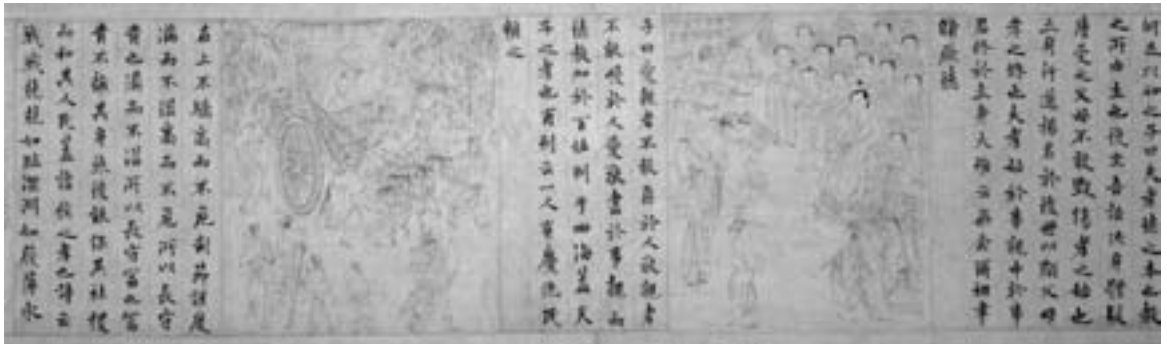 何足以知之子曰夫孝德之本也教
之所由生也復坐吾語汝身體髮
膚受之父母不敢毀傷孝之始也
立身行道揚名於後世以顯父母
孝之終也夫孝始於事親中於事
君終於立身大雅云無念爾祖聿
脩厥德
子曰愛親者不敢惡於人敬親者
不敢慢於人愛敬盡於事親而
德教加於百姓刑于四海蓋天
子之孝也甫刑云一人有慶兆民
賴之
在上不驕高而不危制節謹度
滿而不溢高而不危所以長守
貴也滿而不溢所以長守富也富
貴不離其身然後能保其社稷
而和其人民蓋諸侯之孝也詩云
戰戰兢兢如臨深淵如履薄冰